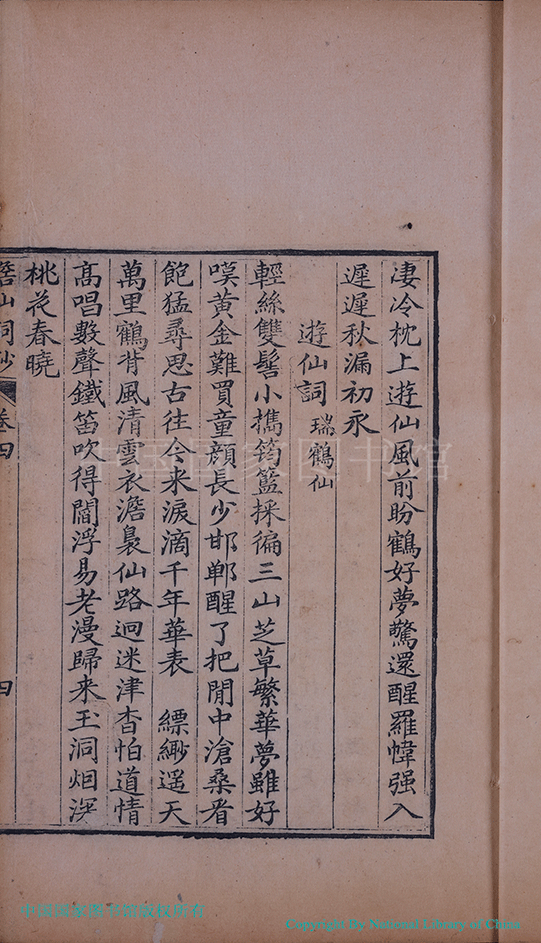 淒冷枕上遊仙風前盼鶴好夢驚還醒羅幃强入
遲遲秋漏初永
遊仙詞 瑞鶴仙
輕絲雙髻小攜筠籃採徧三山芝草繁華夢雖好
嘆黃金難買童顔長少邯鄲醒了把閒中滄桑看
飽猛尋思古往今来淚滴千年華表 縹緲遥天
萬里鶴背風清雲衣澹裊仙路迥迷津杳怕道情
高唱數聲鐵笛吹得閻浮易老漫歸来玉洞烟深
桃花春曉
山詞鈔 卷四 四
中国国家图书馆
中国国家图书馆版权所有
Copyright By National Library of China